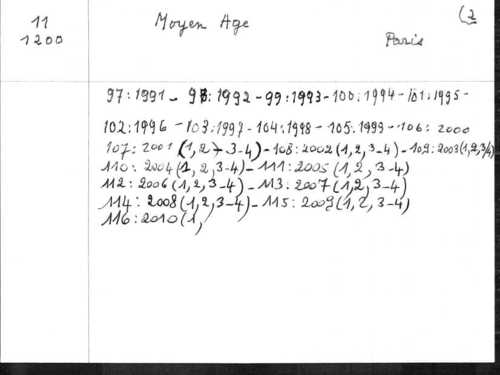 11 Moyen Age (2
1200 Paris
97:1991 - 98:1992 - 99:1993 - 100:1994 - 101:1995 -
102:1996 - 103:1997 - 104:1998 - 105:1999 - 106: 2000
107: 2001 (1,2 - 3-4) - 108:2002 (1,2,3-4) - 109:2003 (1,2,3/4)
110: 2004 (1,2,3-4) - 111:2005 (1,2,3-4)
112: 2006 (1,2,3-4) - 113:2007 (1,2,3-4)
114: 2008 (1,2,3-4) - 115:2009 (1,2,3-4)
116:2010 (1,